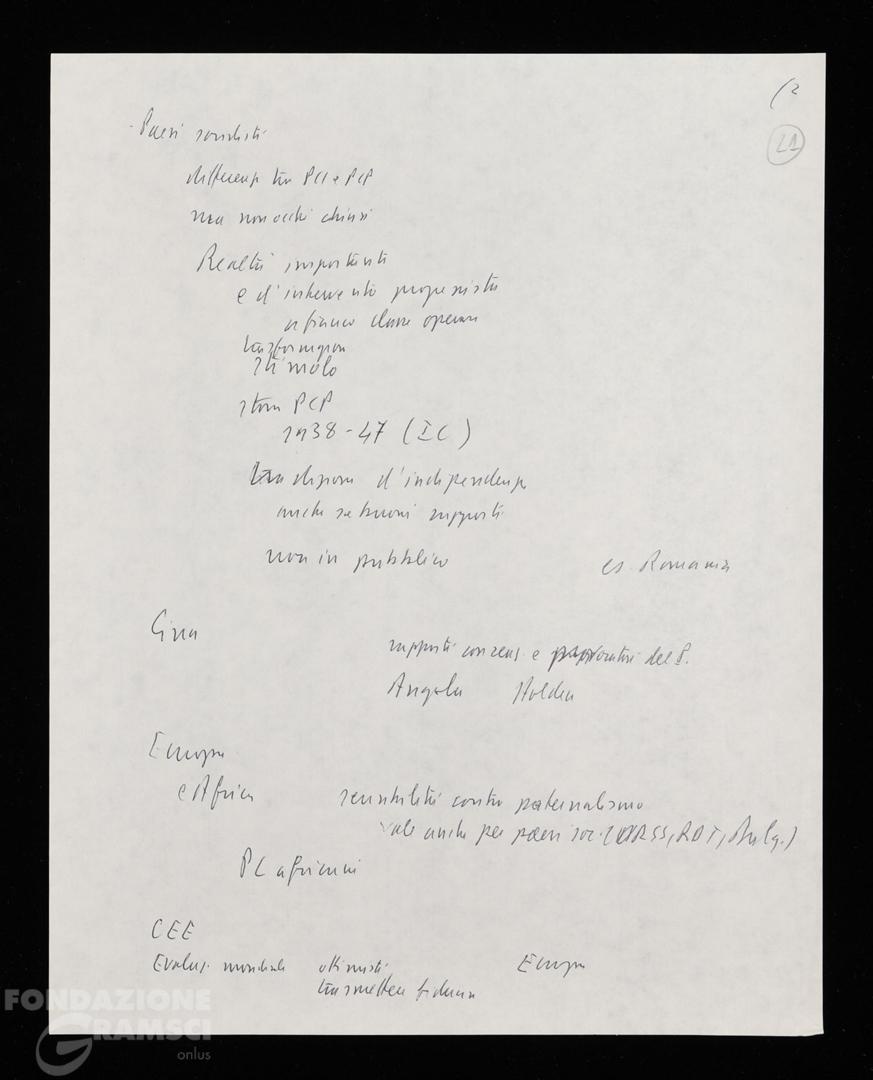 (2
21
- Paesi socialisti
differenze tra PCI e PCP
ma non occhi chiusi
Realtà importanti
e d'intervento progressista
a fianco classe operaia
trasformazioni
stimolo
storia PCP
1938-47 (IC)
tradizioni d'indipendenza
anche se buoni rapporti
non in pubblico es. Romania
Cina
rapporti con del P.
Angola Holden
Europa
e Africa sensibilità contro paternalismo
vale anche per paesi soc. (URSS, RDT, Bulg.)
PC africani
CEE
Evoluz. mondiale ottimisti Europa
trasmettere fiducia
FONDAZIONE
GRAMSCI
onlus